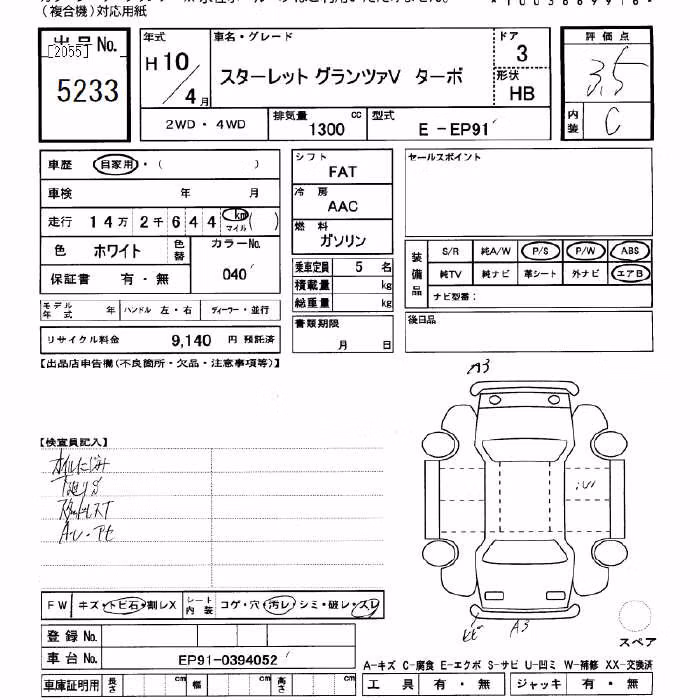 （複合機）対応用紙
出品No.
[2055]
5233
年式
H10／4月
車名・グレード
スターレット グランツァV ターボ
ドア
3
形状
HB
2WD・4WD
排気量
1300 cc
型式
E-EP91
評価点
3.5
内装
C
車歴 自家用・（ ）
車検 年 月
走行 14万 2千 6 4 4 km マイル( )
色 ホワイト 色替
カラーNo.
040
保証書 有・無
モデル年式 年 ハンドル 左・右 ディーラー・並行
リサイクル料金 9,140 円 預託済
シフト
FAT
冷房
AAC
燃料
ガソリン
乗車定員 5 名
積載量 kg
総重量 kg
書類期限
月 日
セールスポイント
装備品
S/R 純A/W P/S P/W ABS
純TV 純ナビ 革シート 外ナビ エアB
ナビ型番：
後日品
【出品店申告欄(不良箇所・欠品・注意事項等)】
【検査員記入】
オイルにじみ
下廻りS
A3
A3
FW キズ・トビ石・割レX
シート内装 コゲ・穴・汚レ・シミ・破レ・スレ
登録No.
車台No. EP91-0394052
車庫証明用 長さ cm 幅 cm 高さ cm
スペア
A-キズ C-腐食 E-エクボ S-サビ U-凹ミ W-補修 XX-交換済
工具 有・無 ジャッキ 有・無